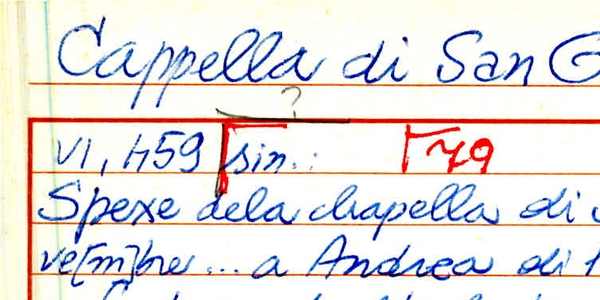 Cappella di San G
?
VI, 459 sin.: 79
Spexe dela chapella di
ve[m]bre... a Andrea di